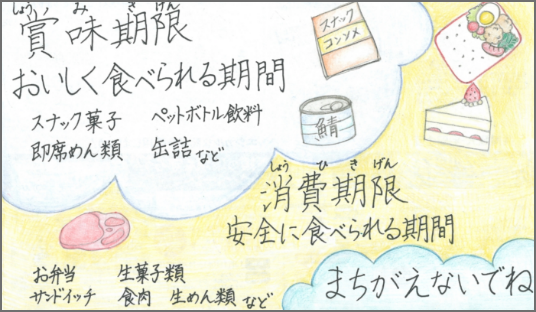 しょう み き げん
賞味期限
おいしく食べられる期間
スナック菓子 ペットボトル飲料
即席めん類 缶詰など
スナック
コンソメ
鯖
しょう ひ き げん
消費期限
安全に食べられる期間
お弁当 生菓子類
サンドイッチ 食肉 生めん類 など
まちがえないでね